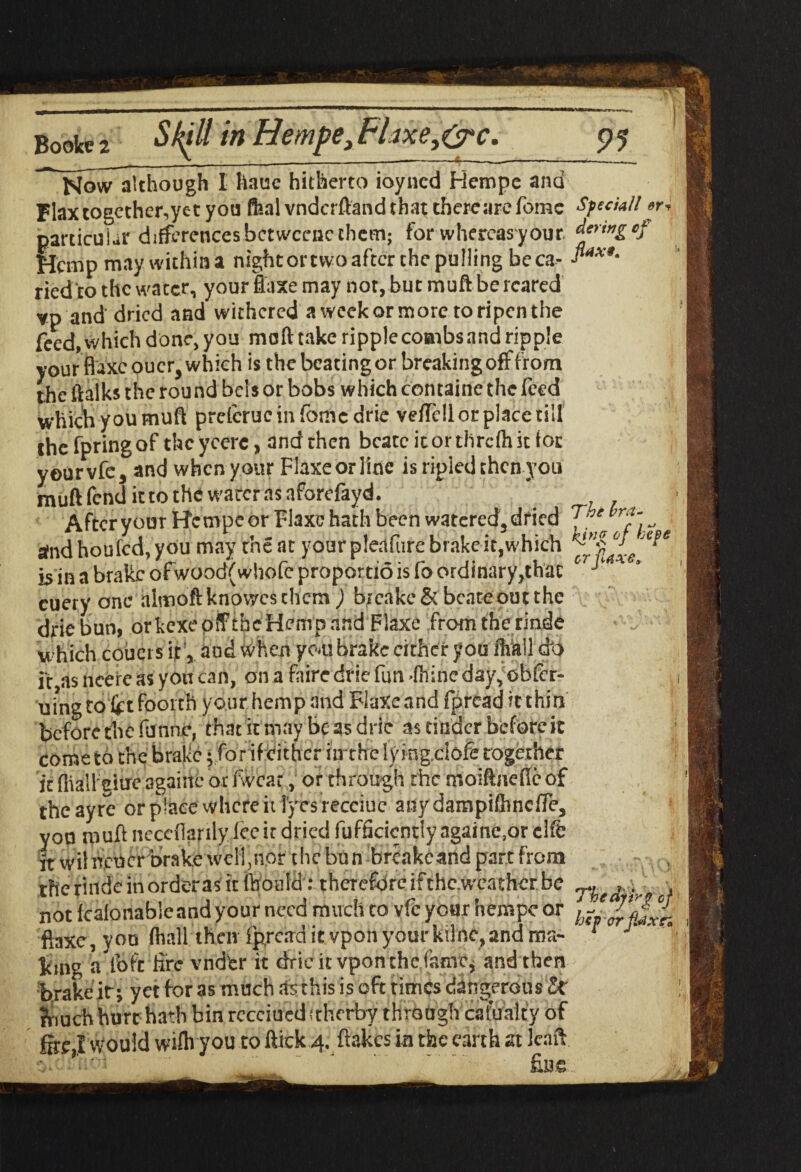 Booke 2 Skill in Hempe, Flaxe, &c. 95
Now although I haue hitherto ioyned Hempe and
Flax together, yet you ſhal vnderſtand that there are ſome
particular differences betweene them; for whereas your
Hemp may within a night or two after the pulling be ca-
ried to the water, your flaxe may not, but muſt be reared
vp and dried and withered a week or more to ripen the
ſeed, which done, you muſt take ripple combs and ripple
your flaxe ouer, which is the beating or breaking off from
the ſtalks the round bels or bobs which containe the ſeed
which you muſt preſerue in ſome drie veſſell or place till
the ſpring of the yeere, and then beate it or threſh it for
your vſe, and when your Flaxe or line is ripled then you
muſt ſend it to the water as aforeſayd.
After your Hempe or Flaxe hath been watered, dried
and houſed, you may thē at your pleaſure brake it, which
is in a brake of wood (whoſe proportiō is ſo ordinary, that
euery one almoſt knowes them) breake & beate out the
drie bun, or kexe off the Hemp and Flaxe from the rinde
which couers it, and when you brake either you ſhall do
it, as neere as you can, on a faire drie ſun-ſhine day, obſer-
uing to ſet foorth your hemp and Flaxe and ſpread it thin
before the ſunne, that it may be as drie as tinder before it
come to the brake; for if either in the lying cloſe together
it ſhall giue againe or ſweat, or through the moiſtneſſe of
the ayre or place where it lyes receiue any dampiſhneſſe,
you muſt neceſſarily ſee it dried ſufficiently againe, or elſe
it wil neuer brake well, nor the bun breake and part from
the rinde in order as it ſhould: therefore if the weather be
not ſeaſonable and your need much to vſe your hempe or
flaxe, you ſhall then ſpread it vpon your kilne, and ma-
king a ſoft fire vnder it drie it vpon the ſame, and then
brake it; yet for as much as this is oft times dangerous &
much hurt hath bin receiued therby through caſualty of
fire, I would wiſh you to ſtick 4. ſtakes in the earth at leaſt
fiue
Speciall or-
dering of
flaxe.
The bra-
king of hēpe
or flaxe.
The dying of
hēp or flaxe.